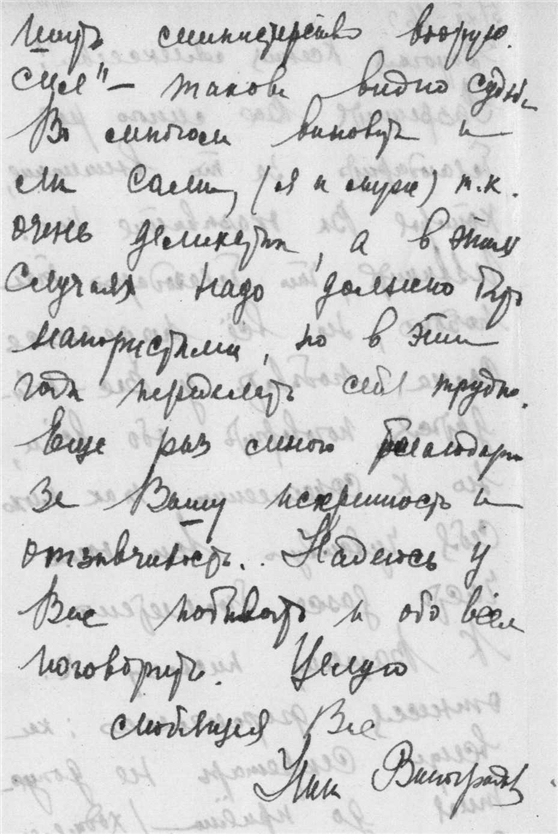 министерство вооруж.
сил" – такова видно судьба
Во многом виноваты и
мы сами, (я и муж) т.к.
очень деликатны, а в этих
случаях надо должно быть
напористыми, но в эти
годы переделать себя трудно.
Еще раз много благодарю
за Вашу искренность и
отзывчивость.. Надеюсь у
Вас побывать и обо всём
поговорить. Целую
любящая Вас